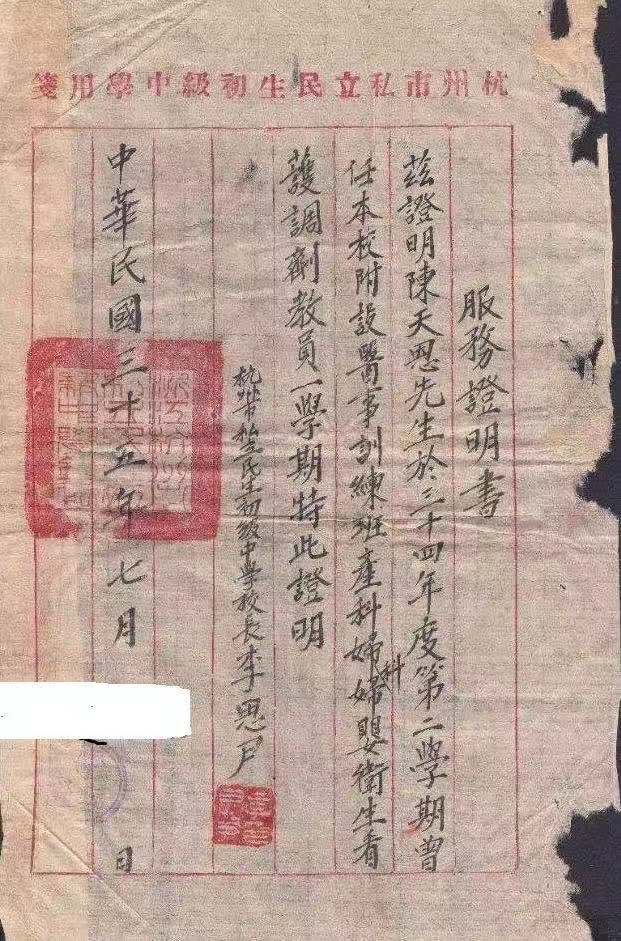 杭州市私立民生初級中學用箋
服務證明書
茲證明陳天恩先生於三十四年度第二學期曾
任本校附設醫事訓練班產科婦科婦嬰衛生看
護調劑教員一學期特此證明
杭州市私立民生初級中學校長李恩戶
中華民國三十五年七月 日